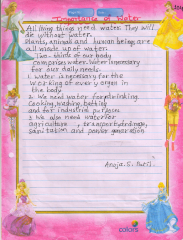 Importance of Water
All living things need water. They will
die without water.
Plants, animals and human beings are
all made up of water.
Two-thirds of our body
comprises water. Water is necessary
for our daily needs.
1. Water is necessary for the
working of every organ in
the body
2. We need water for drinking
Cooking, washing, bathing
and for industrial purposes
3. We also need water for
agriculture, transport, drainage,
Sanitation and power generation
Anuja. S. Patil.
colors